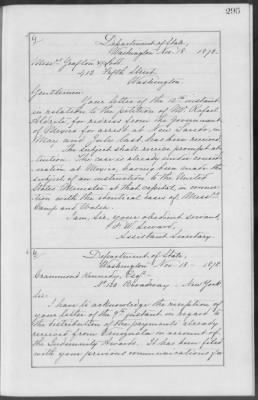 295
Department of State,
Washington Nov. 18. 1878.
Messrs. Grafton &
412 Fifth Street,
Washington.
Gentlemen:
Your letter of the 12th instant
in relation to the petition of Mr. Rafael
for redress from the government
of Mexico for arrest at New Laredo, in
May and July last has been received.
The subject shall receive prompt at-
tention. The case is already under consid-
eration at Mexico, having been made the
subject of an instruction to the United
States Minister at that capital, in connec-
tion with the identical cases of Messrs.
Camp and
I am, &c. your obedient servant,
F. W. Seward,
Assistant Secretary.
Department of State,
Washington Nov. 18 - 1878
Crammond Kennedy, Esqr.
No. 120 Broadway - New York
Sir:
I have to acknowledge the reception of
your letter of the 9th instant in regard to
the distribution of the payments already
received from Venezuela on account of
the Indemnity Awards. It has been filed
with your previous communications for